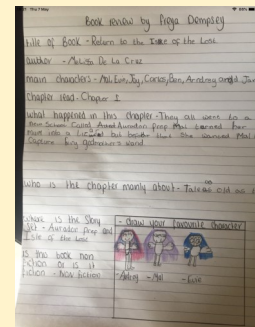 Thu 7 May
Book review by Freya Dempsey
title of Book - Return to the Isle of the Lost
author - Melissa De La Cruz
main characters - Mal, Evie, Jay, Carlos, Ben, Arradney and Jan
Chapter read - Chapter 1
what happened in this chapter - They all went to a
new School Called Auradon prep Mal turned her
mum into a Lizard but before that She wanted Mal
Capture fairy godmother's wand
who is the chapter mainly about - Tale as old as
where is the Story
Set - Auradon prep and
Isle of the Lost
is this book non
fiction or is it
fiction - Non fiction
- draw your favourite character
- Mal
- Evie